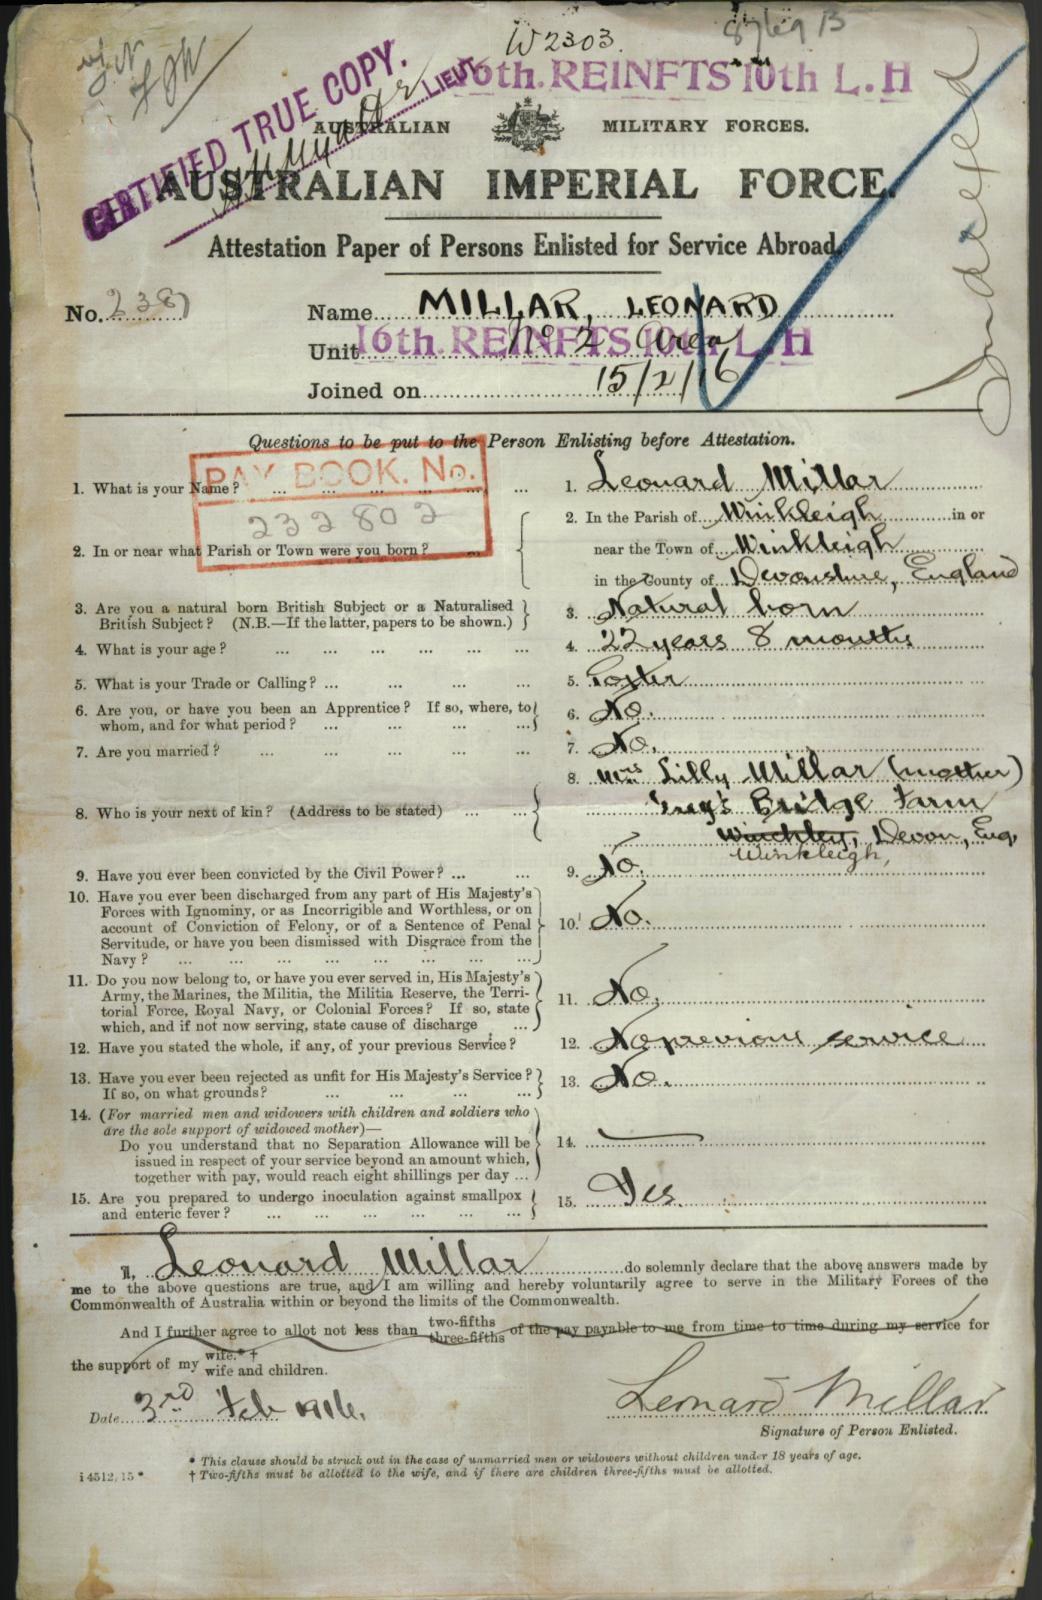 W2303.
16th. REINFTS 10th L. H
CERTIFIED TRUE COPY.
LIEUT
AUSTRALIAN MILITARY FORCES.
AUSTRALIAN IMPERIAL FORCE.
Attestation Paper of Persons Enlisted for Service Abroad.
Indexed
No. 2387
Name MILLAR, LEONARD
Unit No 2 Area
16th. REINFTS 10th L. H
Joined on 15/2/16
Questions to be put to the Person Enlisting before Attestation.
PAY BOOK. No.
232802
1. What is your Name? ... ... ... ... ... ... 1. Leonard Millar
2. In or near what Parish or Town were you born? ... 2. In the Parish of Winkleigh in or
near the Town of Winkleigh
in the County of Devonshire, England
3. Are you a natural born British Subject or a Naturalised
British Subject? (N.B.—If the latter, papers to be shown.) 3. Natural born
4. What is your age? ... ... ... ... ... ... 4. 22 years 8 months
5. What is your Trade or Calling? ... ... ... ... 5.
6. Are you, or have you been an Apprentice? If so, where, to
whom, and for what period? ... ... ... ... 6. No.
7. Are you married? ... ... ... ... ... 7. No.
8. Who is your next of kin? (Address to be stated) ... ... 8. Mrs Lilly Millar (mother)
Bridge Farm
Winchley, Devon, Eng.
Winkleigh,
9. Have you ever been convicted by the Civil Power? ... ... 9. No.
10. Have you ever been discharged from any part of His Majesty's
Forces with Ignominy, or as Incorrigible and Worthless, or on
account of Conviction of Felony, or of a Sentence of Penal
Servitude, or have you been dismissed with Disgrace from the
Navy? ... ... ... ... ... ... ... ... 10. No.
11. Do you now belong to, or have you ever served in, His Majesty's
Army, the Marines, the Militia, the Militia Reserve, the Terri-
torial Force, Royal Navy, or Colonial Forces? If so, state
which, and if not now serving, state cause of discharge ... 11. No.
12. Have you stated the whole, if any, of your previous Service? 12. No previous service
13. Have you ever been rejected as unfit for His Majesty's Service?
If so, on what grounds? ... ... ... ... 13. No.
14. (For married men and widowers with children and soldiers who
are the sole support of widowed mother)—
Do you understand that no Separation Allowance will be
issued in respect of your service beyond an amount which,
together with pay, would reach eight shillings per day ... 14.
15. Are you prepared to undergo inoculation against smallpox
and enteric fever? ... ... ... ... ... ... 15. Yes.
I, Leonard Millar do solemnly declare that the above answers made by
me to the above questions are true, and I am willing and hereby voluntarily agree to serve in the Military Forces of the
Commonwealth of Australia within or beyond the limits of the Commonwealth.
And I further agree to allot not less than two-fifths three-fifths of the pay payable to me from time to time during my service for
the support of my wife.*† wife and children.
Date 3rd Feb 1916.
Leonard Millar
Signature of Person Enlisted.
* This clause should be struck out in the case of unmarried men or widowers without children under 18 years of age.
† Two-fifths must be allotted to the wife, and if there are children three-fifths must be allotted.